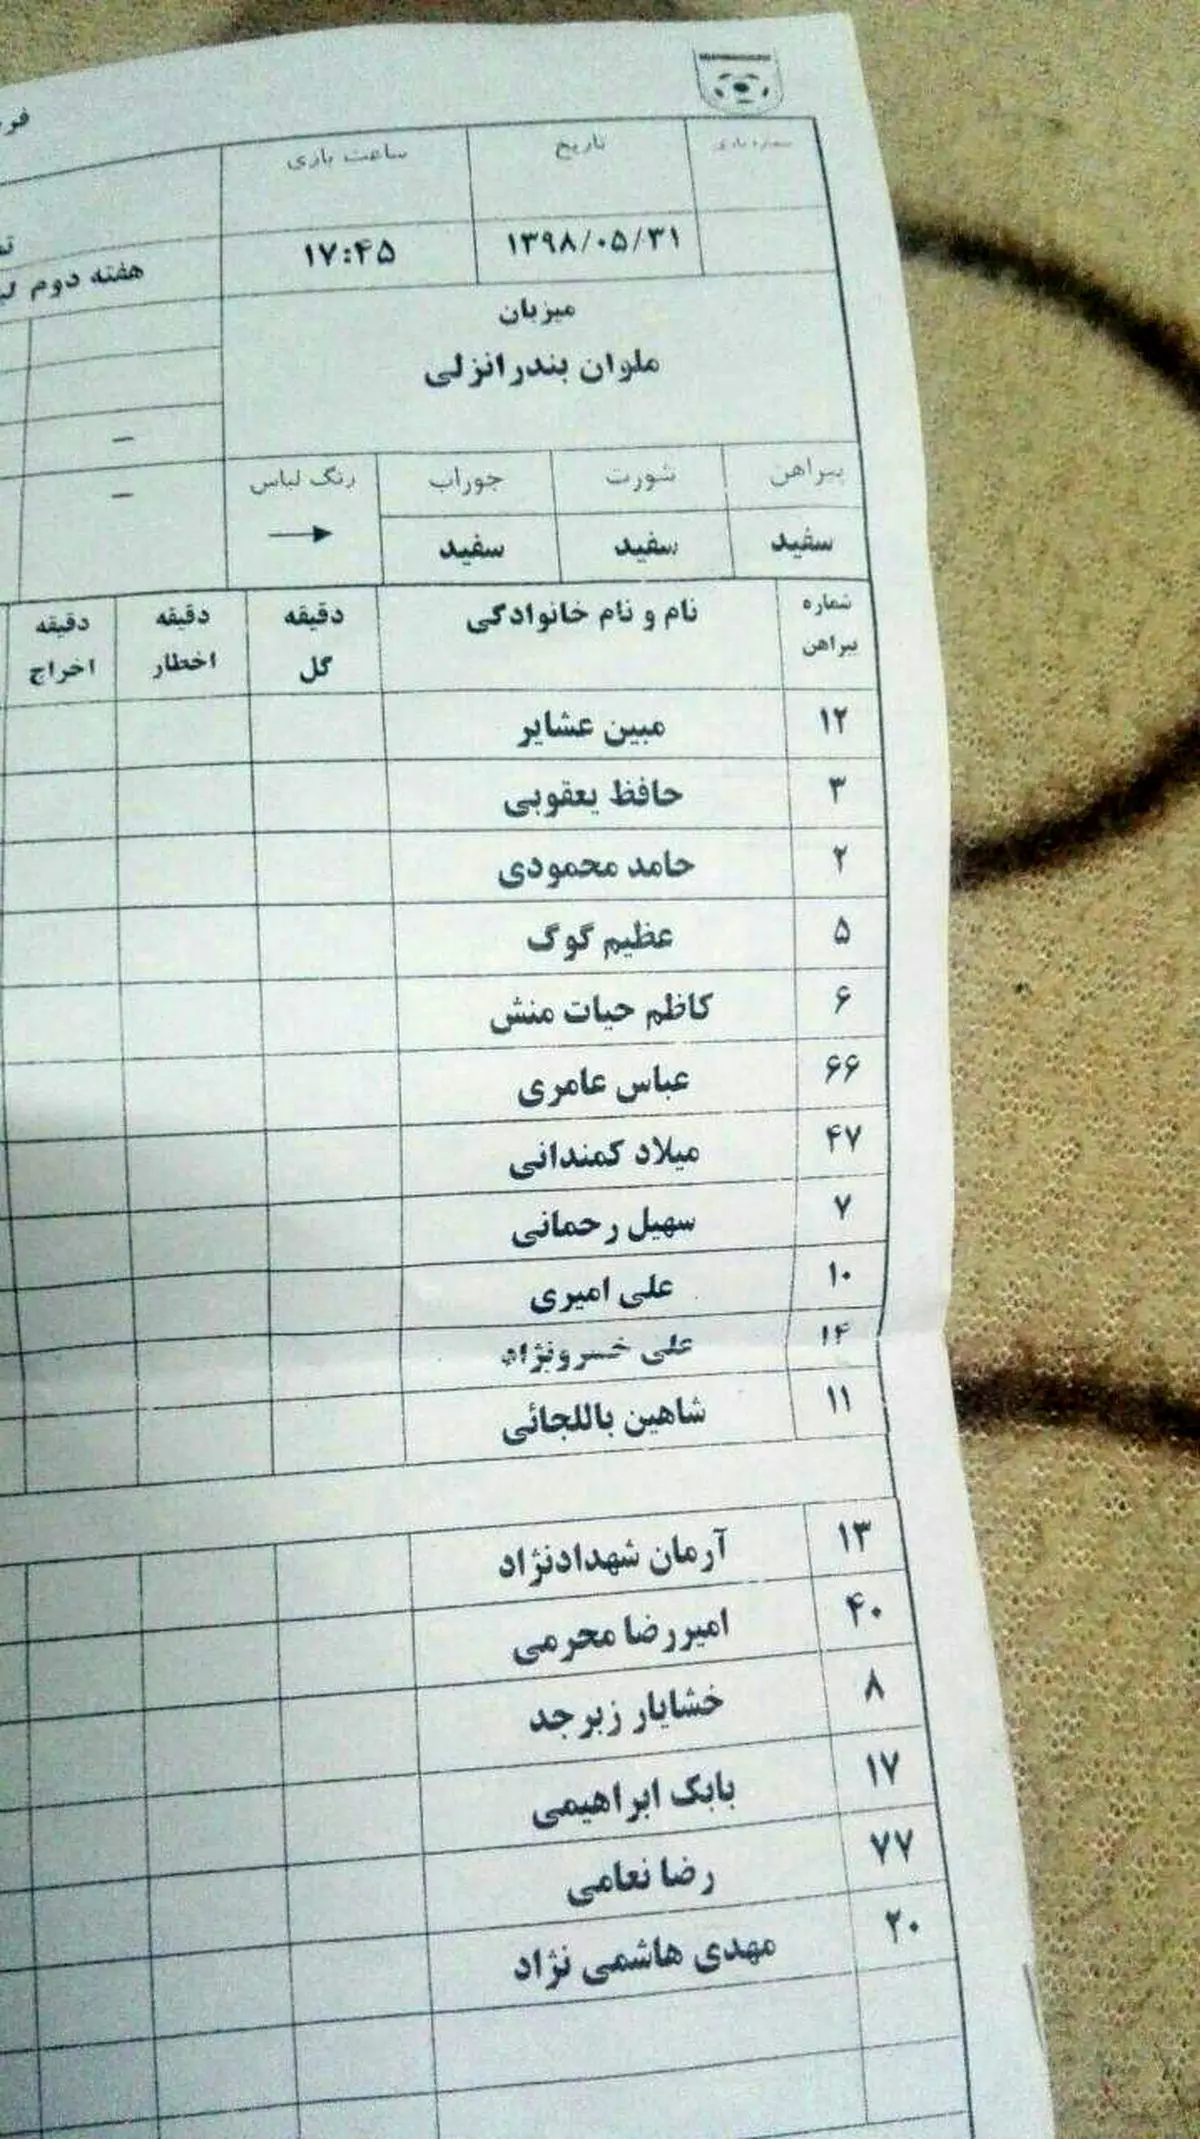 شماره بازی تاریخ ساعت بازی
۱۳۹۸/۰۵/۳۱ ۱۷:۴۵
هفته دوم
میزبان
ملوان بندرانزلی
–
پیراهن شورت جوراب رنگ لباس –
سفید سفید سفید
شماره پیراهن نام و نام خانوادگی دقیقه گل دقیقه اخطار دقیقه اخراج
۱۲ مبین عشایر
۳ حافظ یعقوبی
۲ حامد محمودی
۵ عظیم گوگ
۶ کاظم حیات منش
۶۶ عباس عامری
۴۷ میلاد کمندانی
۷ سهیل رحمانی
۱۰ علی امیری
۱۴ علی خسرونژاد
۱۱ شاهین باللجائی
۱۳ آرمان شهدادنژاد
۴۰ امیررضا محرمی
۸ خشایار زبرجد
۱۷ بابک ابراهیمی
۷۷ رضا نعامی
۲۰ مهدی هاشمی نژاد